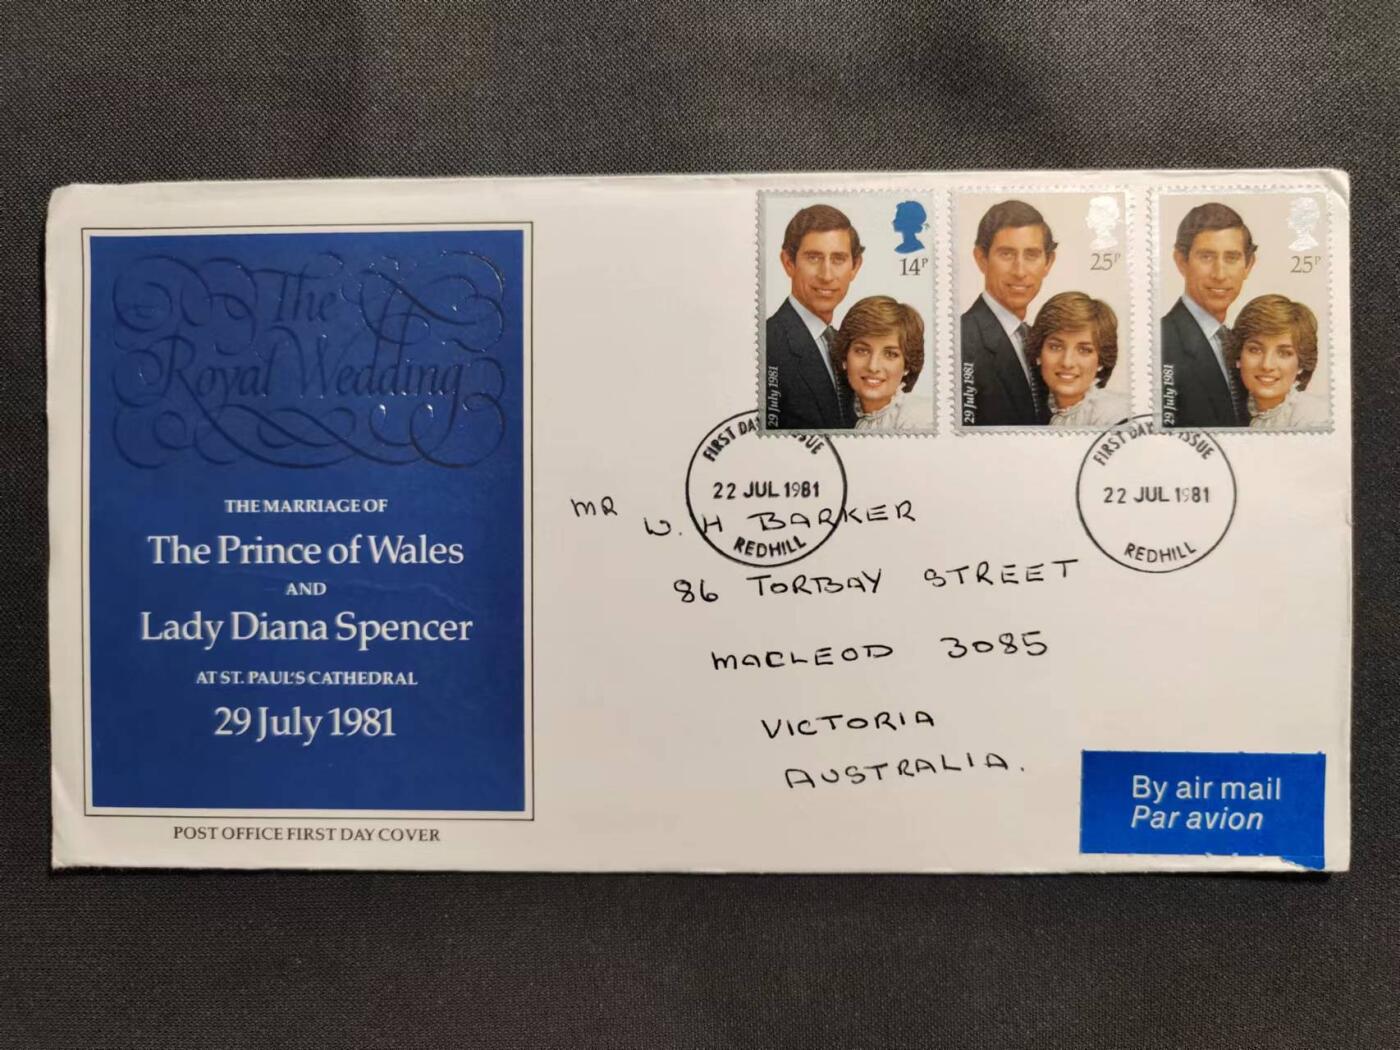 The
Royal Wedding
THE MARRIAGE OF
The Prince of Wales
AND
Lady Diana Spencer
AT ST. PAUL'S CATHEDRAL
29 July 1981
POST OFFICE FIRST DAY COVER
14P
29 July 1981
25P
29 July 1981
25P
29 July 1981
FIRST DAY OF ISSUE
22 JUL 1981
REDHILL
FIRST DAY OF ISSUE
22 JUL 1981
REDHILL
MR W. H BARKER
86 TORBAY STREET
MACLEOD 3085
VICTORIA
AUSTRALIA.
By air mail
Par avion